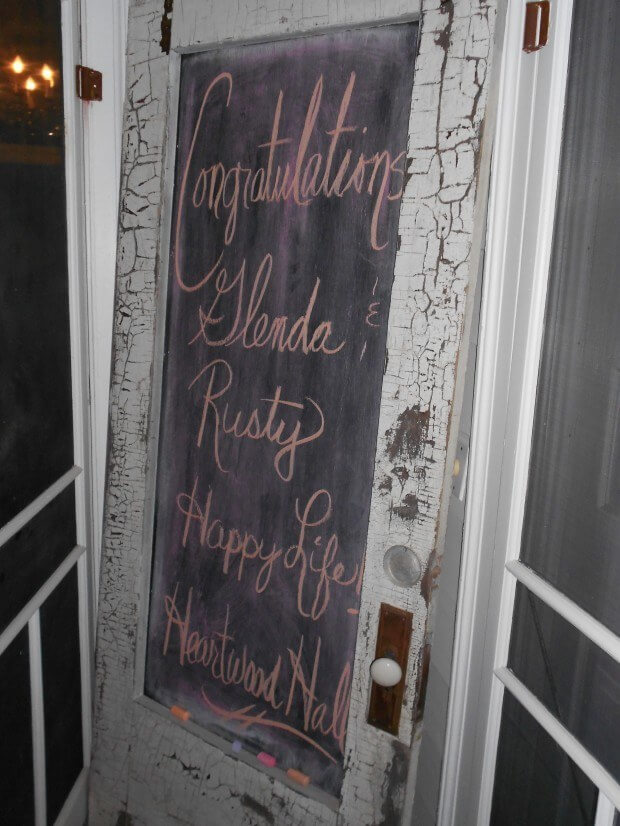 Congratulations
Glenda &
Rusty
Happy Life!
Heartwood Hall